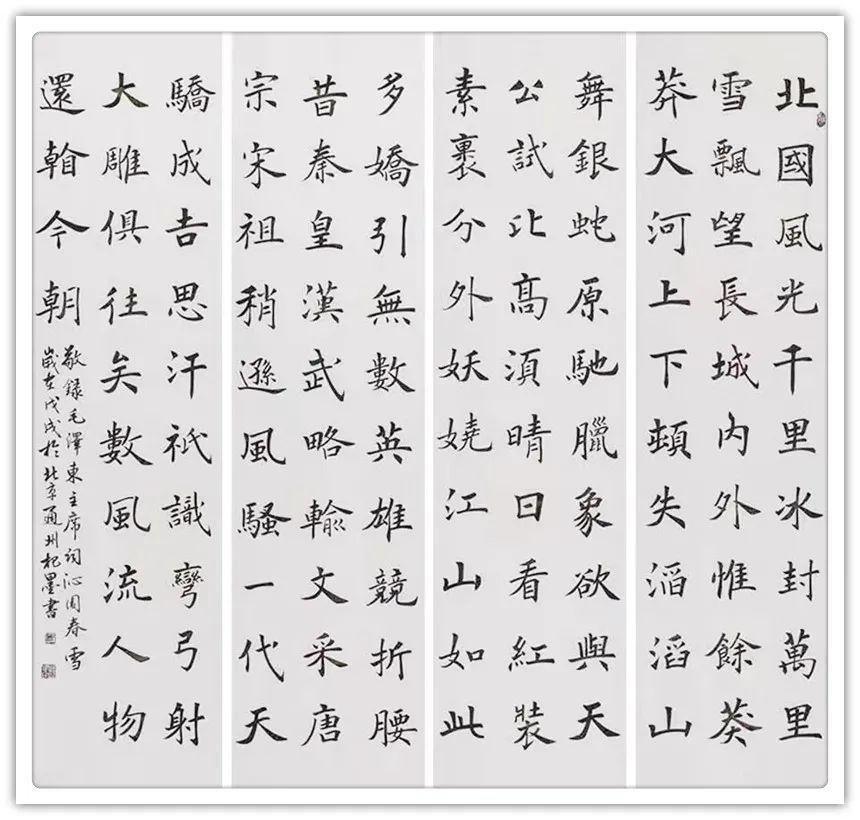 北國風光千里冰封萬里
雪飄望長城内外惟餘莽
莽大河上下頓失滔滔山
舞銀蛇原馳臘象欲與天
公試比高須晴日看紅裝
素裹分外妖嬈江山如此
多嬌引無數英雄競折腰
昔秦皇漢武略輸文采唐
宗宋祖稍遜風騷一代天
驕成吉思汗祇識彎弓射
大雕俱往矣數風流人物
還看今朝
敬錄毛澤東主席詞沁園春雪
歲在戊戌於北京通州杞墨書